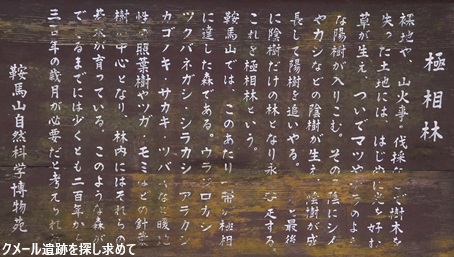 極相林
裸地や、山火事・伐採などで樹木を
失った土地には、はじめに光を好む
草が生え、ついでマツやナラのよう
な陽樹が入りこむ。その陰にシイ
やカシなどの陰樹が生え、陰樹が成
長して陽樹を追いやる。と最後
に陰樹だけの林となり永く安定する。
これを極相林という。
鞍馬山では、このあたり一帯が極相
に達した森である。ウラジロガシ
ツクバネガシ シラカシ アラカシ
カゴノキ サカキ ツバキなど暖地
性の照葉樹やツガ モミなどの針葉
樹が中心となり、林内にはそれらの
若木が育っている。このような森が
できるまでには少くとも二百年から
三百年の歳月が必要だと考えられ
鞍馬山自然科学博物苑
クメール遺跡を探し求めて